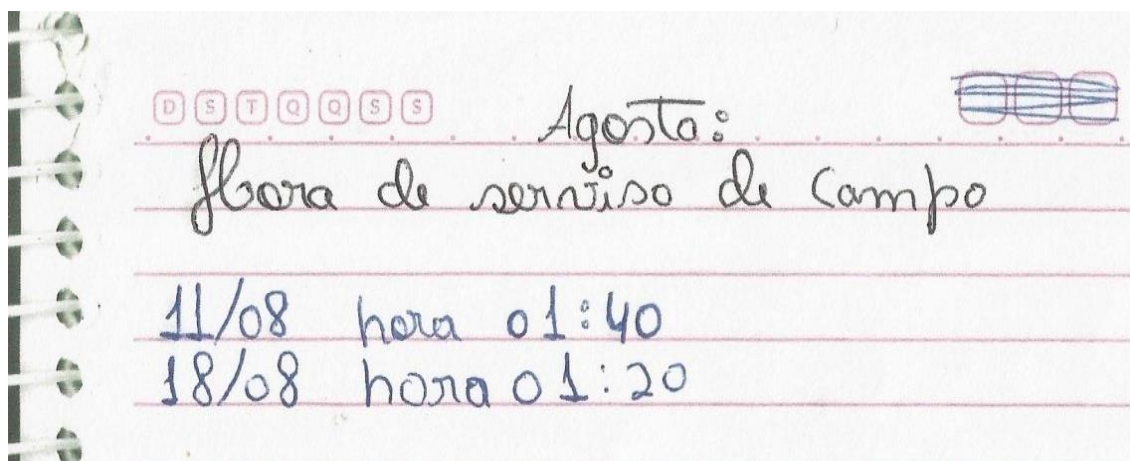 D S T Q Q S S
Agosto:
Hora de serviso de Campo
11/08 hora 01:40
18/08 hora 01:20